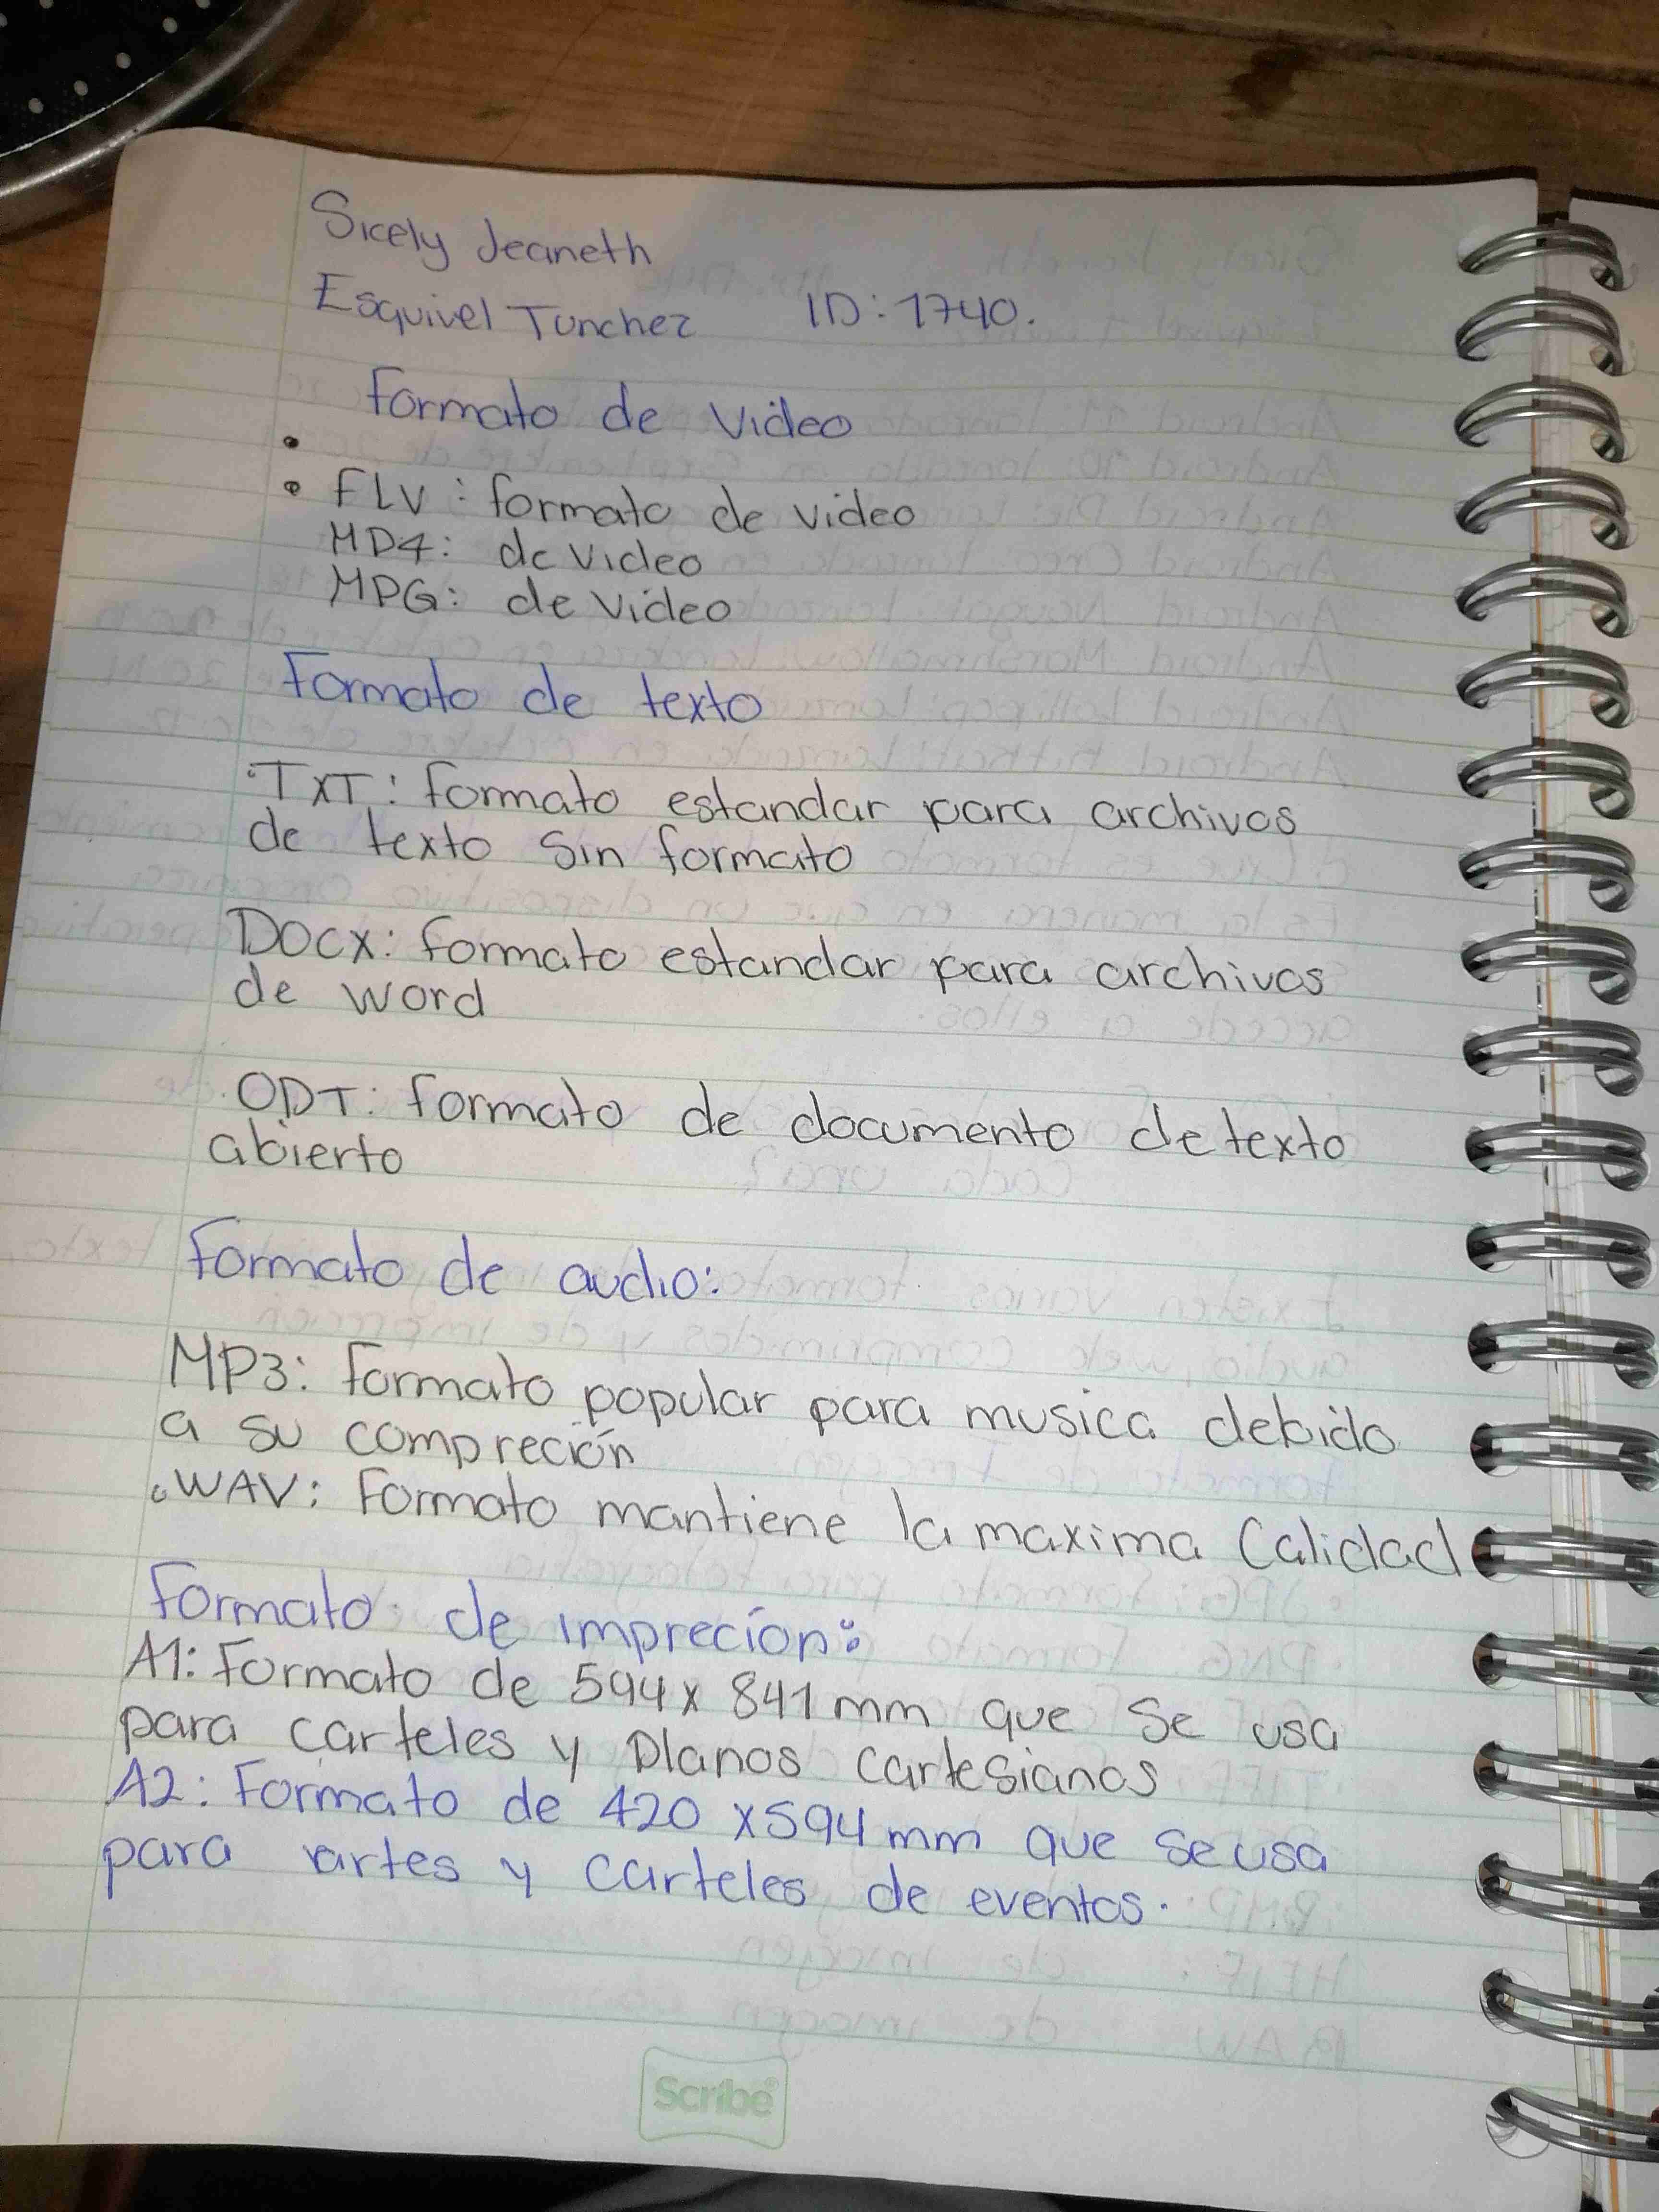 Sicely Jeaneth
Esquivel Tunchez ID: 1740.
Formato de Video
• FLV: formato de video
MD4: de Video
MPG: de Video
Formato de texto
·TXT: formato estandar para archivos
de texto Sin formato
DOCX: formato estandar para archivos
de word
ODT: formato de documento de texto
abierto
Formato de audio:
MP3: formato popular para musica debido
a su compreción
·WAV: Formato mantiene la maxima Calidad
Formato de impreción:
A1: Formato de 594x 841mm que Se usa
para carteles y Planos cartesianos
A2: Formato de 420 x594mm que Se usa
para artes y carteles de eventos.
Scribe